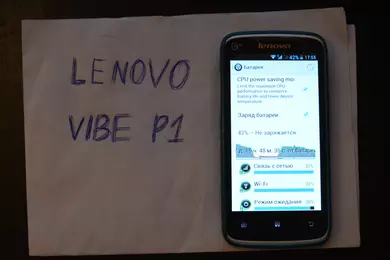 LENOVO
VIBE P1
lenovo
42% 17:55
Батарея
CPU power saving mo
Limit the maximum CPU
performance to conserve
battery life and lower device
temperature
Заряд батареи
42% – Не заряжается
Связь с сетью
Wi-Fi
Режим ожидания